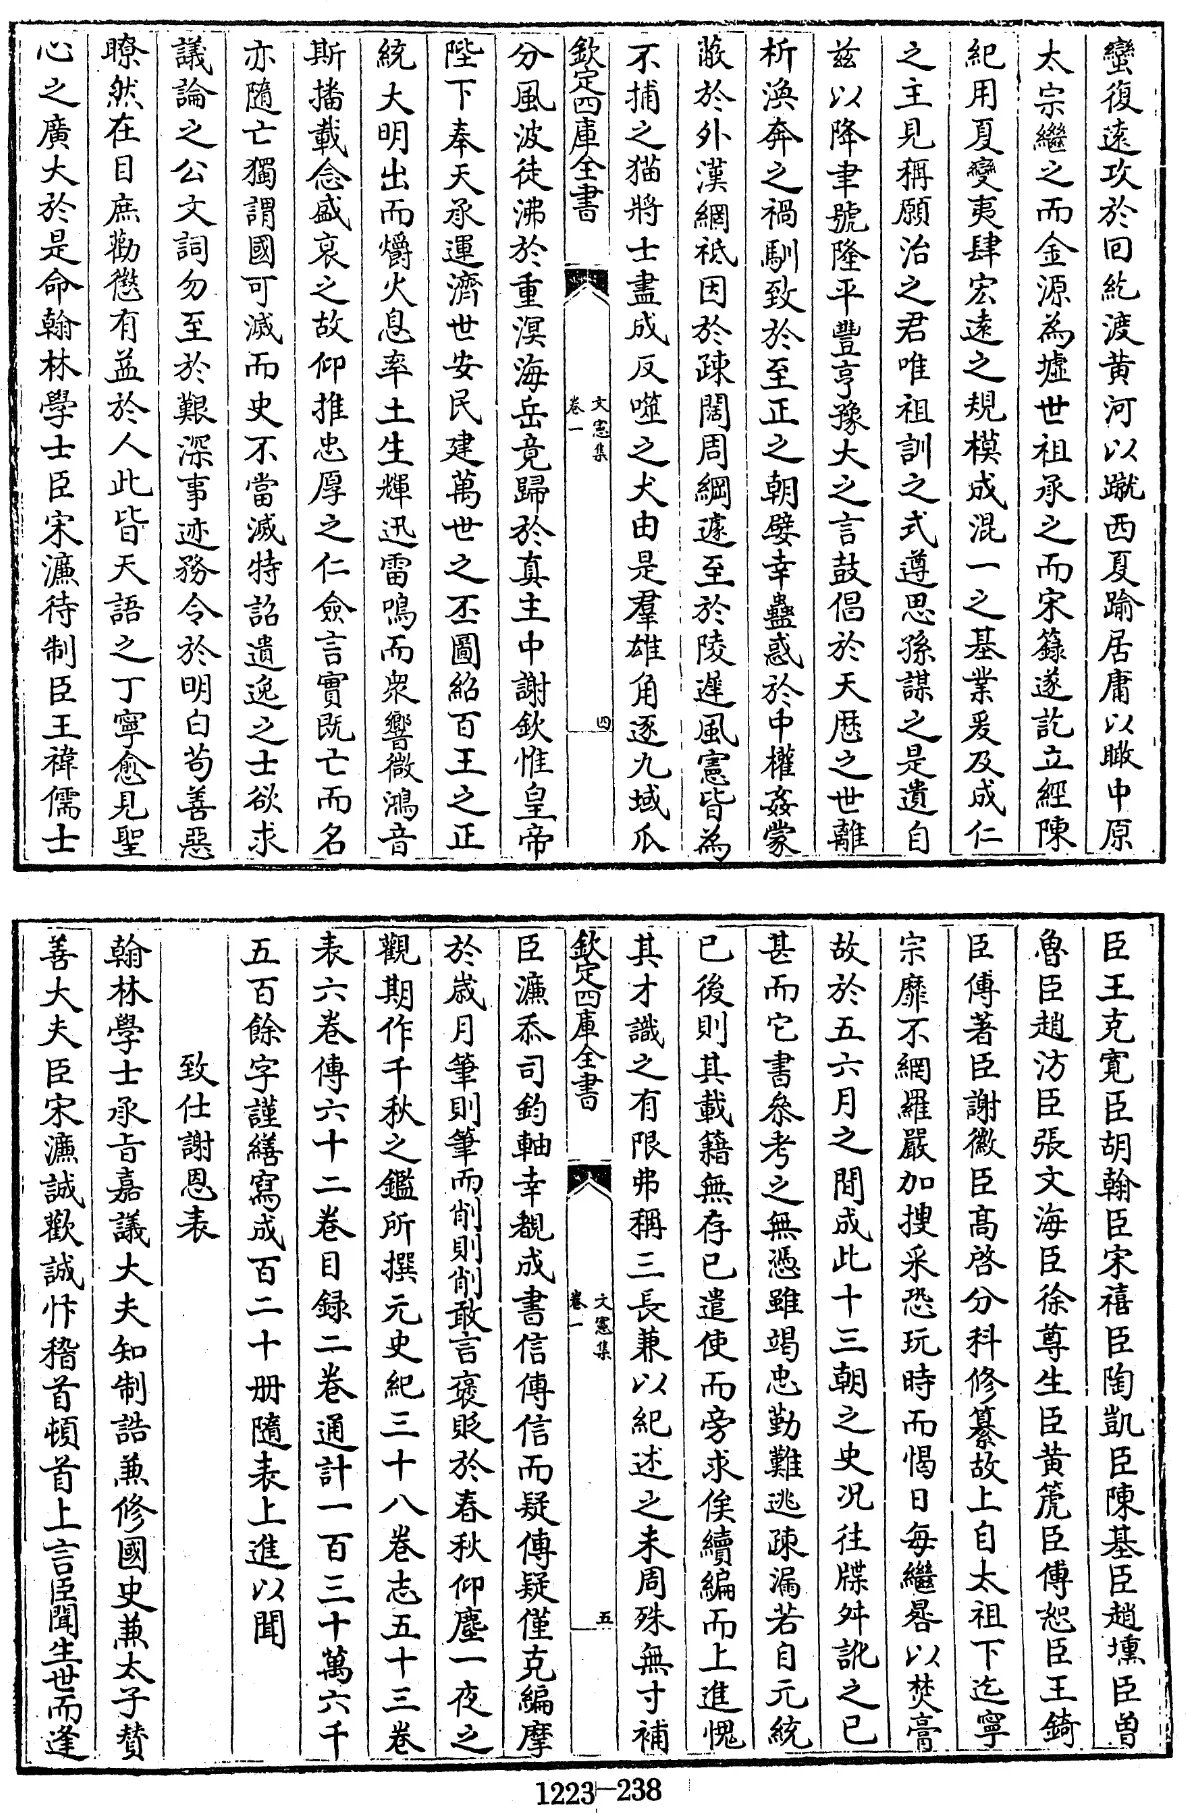 蠻復遠攻於回紇渡黄河以蹴西夏踰居庸以瞰中原
太宗繼之而金源為墟世祖承之而宋籙遂訖立經陳
紀用夏變夷肆宏遠之規模成混一之基業爰及成仁
之主見稱願治之君唯祖訓之式遵思孫謀之是遺自
兹以降聿號隆平豐亨豫大之言鼓倡於天厯之世離
析渙奔之禍馴致於至正之朝嬖幸蠱惑於中權姦蒙
蔽於外漢網祗因於疎闊周綱遽至於陵遲風憲皆為
不捕之猫將士盡成反噬之犬由是羣雄角逐九域瓜
欽定四庫全書
文憲集
卷一
四
分風波徒沸於重溟海岳竟歸於真主中謝欽惟皇帝
陛下奉天承運濟世安民建萬世之丕圖紹百王之正
統大明出而爝火息率土生輝迅雷鳴而衆響微鴻音
斯播載念盛衰之故仰推忠厚之仁僉言實既亡而名
亦隨亡獨謂國可滅而史不當滅特詔遺逸之士欲求
議論之公文詞勿至於艱深事迹務令於明白苟善惡
瞭然在目庶勸懲有益於人此皆天語之丁寧愈見聖
心之廣大於是命翰林學士臣宋濂待制臣王禕儒士
臣王克寛臣胡翰臣宋禧臣陶凱臣陳基臣趙壎臣曽
魯臣趙汸臣張文海臣徐尊生臣黄箎臣傅恕臣王錡
臣傅著臣謝徽臣髙啓分科修纂故上自太祖下迄寧
宗靡不網羅嚴加搜采恐玩時而愒日每繼晷以焚膏
故於五六月之間成此十三朝之史况往牒舛訛之已
甚而它書叅考之無憑雖竭忠勤難逃疎漏若自元統
已後則其載籍無存已遣使而旁求俟續編而上進愧
其才識之有限弗稱三長兼以紀述之未周殊無寸補
欽定四庫全書
文憲集
卷一
五
臣濂忝司鈞軸幸覩成書信傳信而疑傳疑僅克編摩
於歳月筆則筆而削則削敢言褒貶於春秋仰塵一夜之
觀期作千秋之鑑所撰元史紀三十八卷志五十三卷
表六卷傳六十二卷目録二卷通計一百三十萬六千
五百餘字謹繕寫成百二十册隨表上進以聞
致仕謝恩表
翰林學士承旨嘉議大夫知制誥兼修國史兼太子賛
善大夫臣宋濂誠歡誠忭稽首頓首上言臣聞生世而逢
1223-238